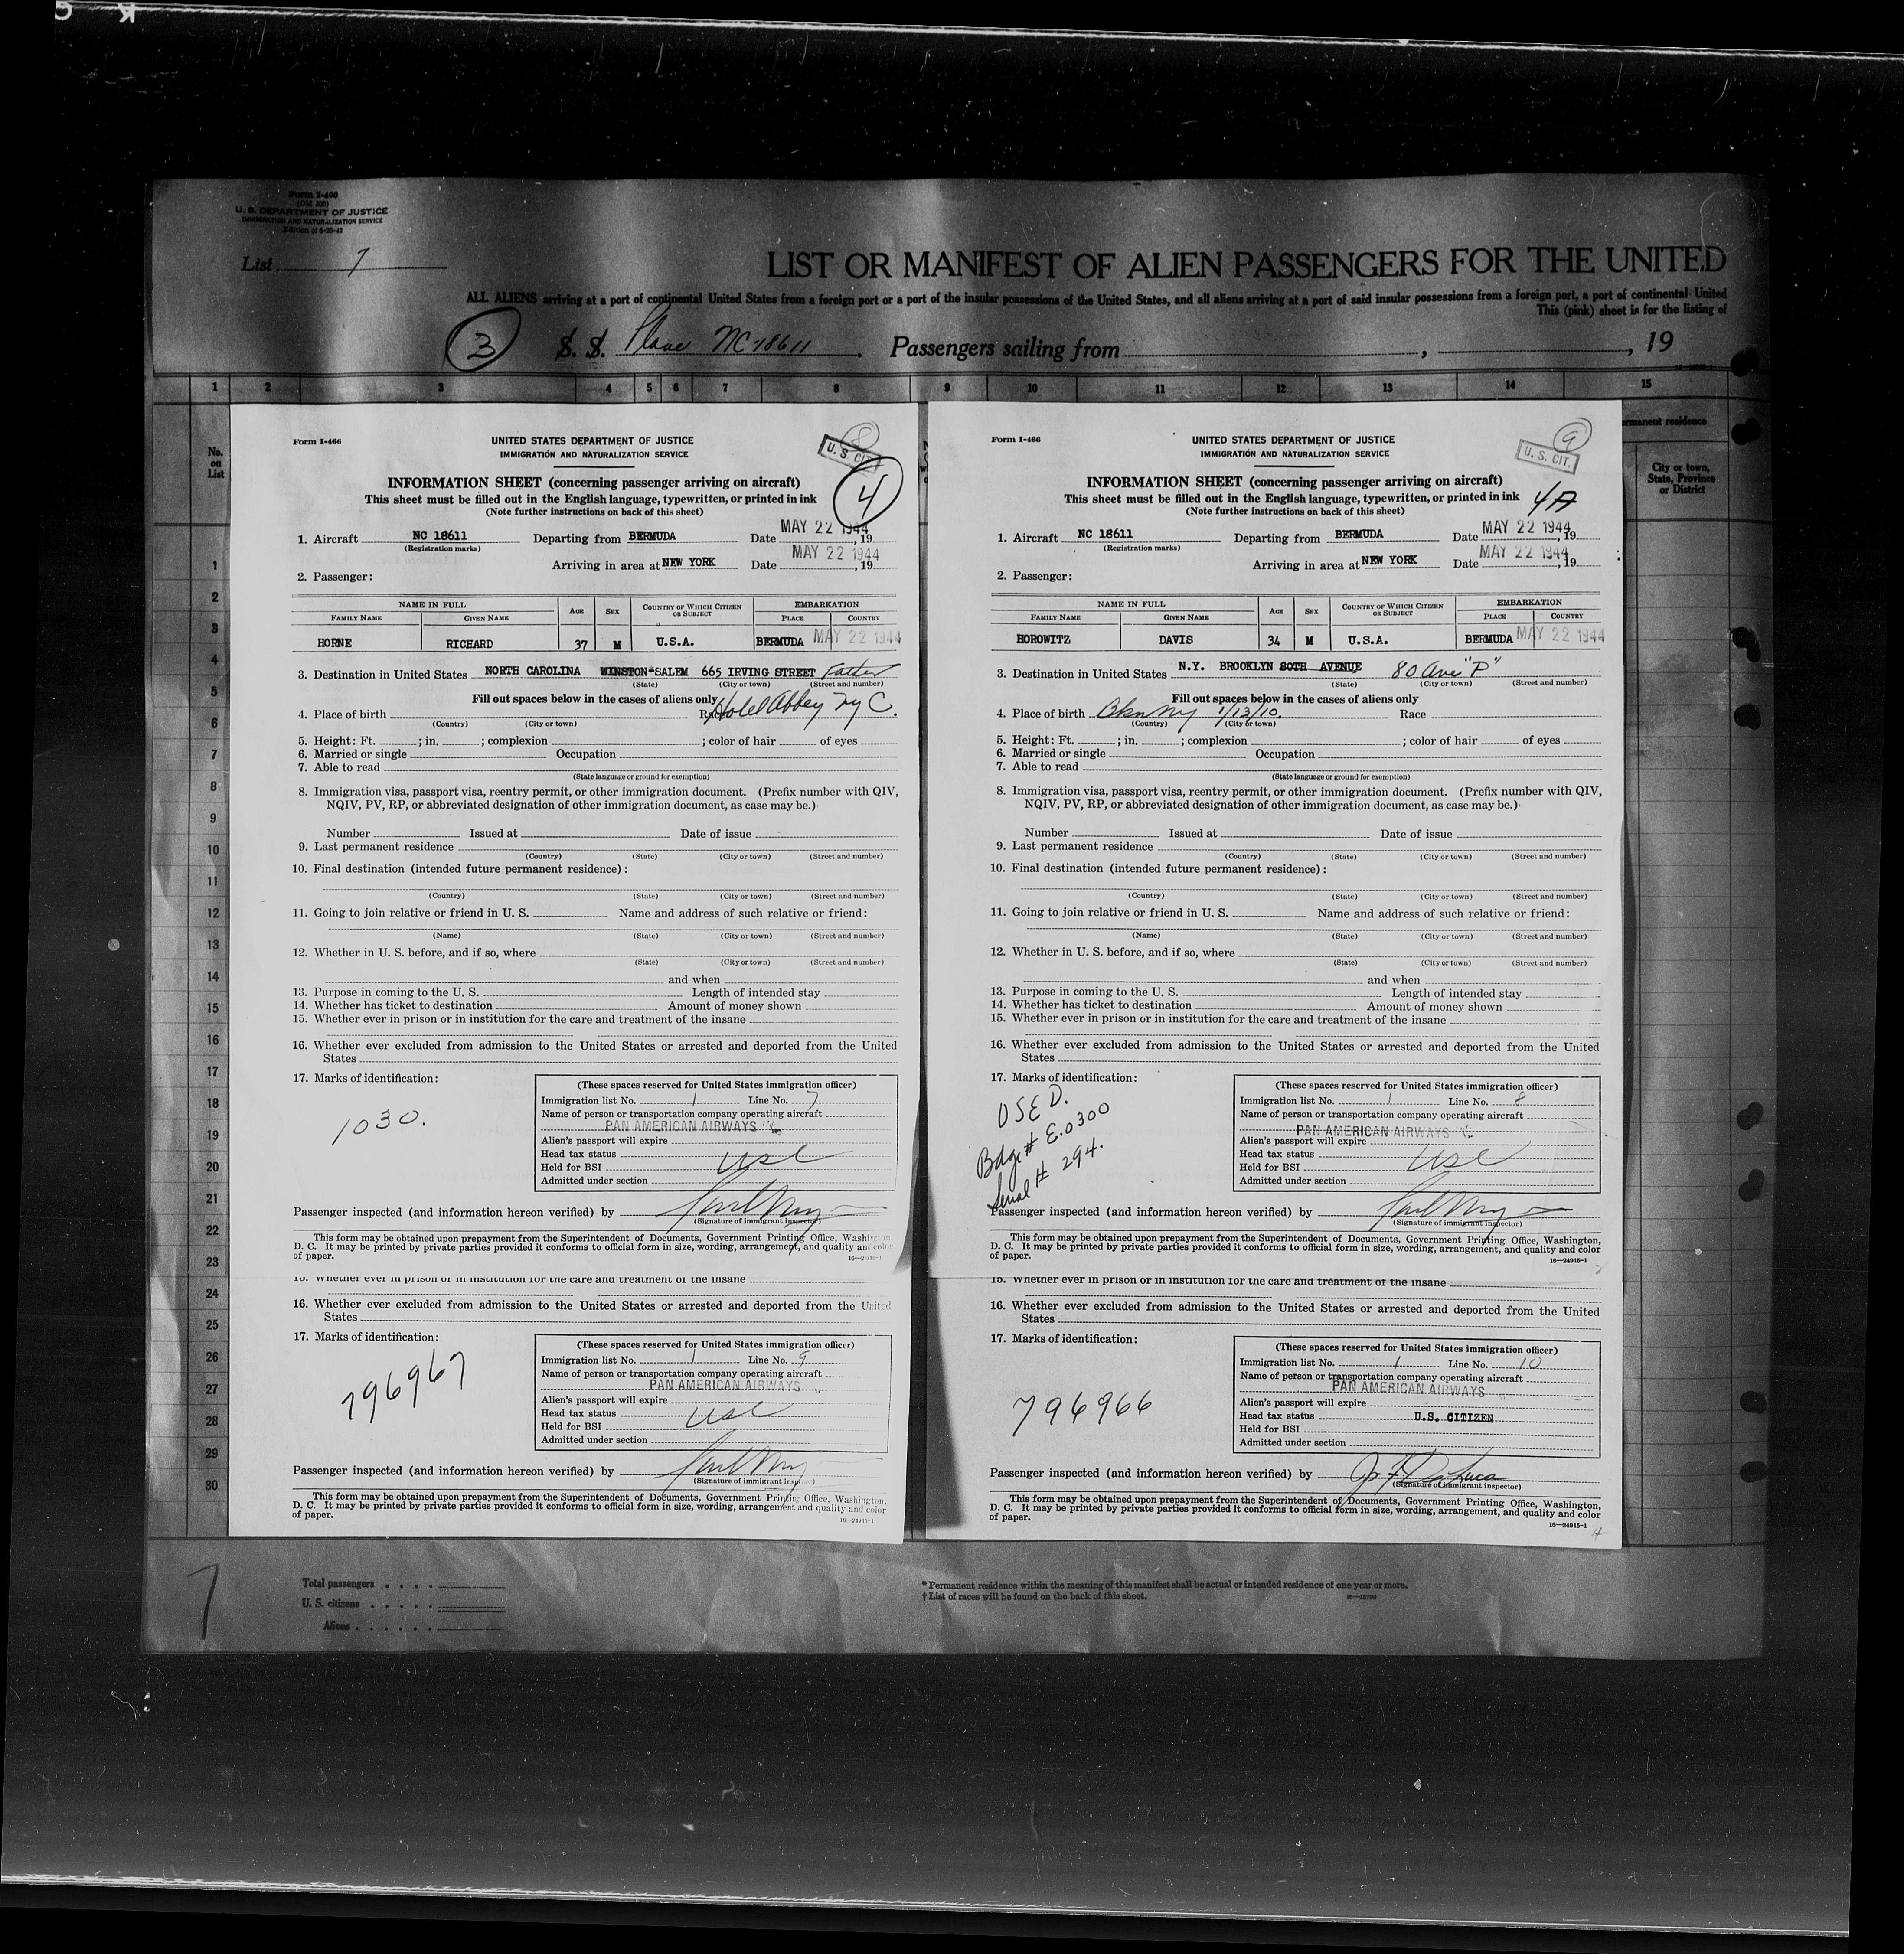 Form I-400
(Old 500)
U. S. DEPARTMENT OF JUSTICE
IMMIGRATION AND NATURALIZATION SERVICE
List 7
LIST OR MANIFEST OF ALIEN PASSENGERS FOR THE UNITED
ALL ALIENS arriving at a port of continental United States from a foreign port or a port of the insular possessions of the United States, and all aliens arriving at a port of said insular possessions from a foreign port, a port of continental United
This (pink) sheet is for the listing of
3 S. S. Plane NC18611. Passengers sailing from , , 19
1 2 3 4 5 6 7 8 9 10 11 12 13 14 15
No. on List
rmanent residence
City or town, State, Province or District
1
2
3
4
5
6
7
8
9
10
11
12
13
14
15
16
17
18
19
20
21
22
23
24
25
26
27
28
29
30
Form I-466
UNITED STATES DEPARTMENT OF JUSTICE
IMMIGRATION AND NATURALIZATION SERVICE
8
U. S. CIT.
4
INFORMATION SHEET (concerning passenger arriving on aircraft)
This sheet must be filled out in the English language, typewritten, or printed in ink
(Note further instructions on back of this sheet)
1. Aircraft NC 18611 Departing from BERMUDA Date MAY 22 1944, 19
(Registration marks)
Arriving in area at NEW YORK Date MAY 22 1944, 19
2. Passenger:
NAME IN FULL AGE SEX COUNTRY OF WHICH CITIZEN OR SUBJECT EMBARKATION
FAMILY NAME GIVEN NAME PLACE COUNTRY
HORNE RICHARD 37 M U.S.A. BERMUDA MAY 22 1944
3. Destination in United States NORTH CAROLINA WINSTON-SALEM 665 IRVING STREET Father
(State) (City or town) (Street and number)
Fill out spaces below in the cases of aliens only
4. Place of birth Race Hotel Abbey NYC.
(Country) (City or town)
5. Height: Ft. ; in. ; complexion ; color of hair of eyes
6. Married or single Occupation
7. Able to read
(State language or ground for exemption)
8. Immigration visa, passport visa, reentry permit, or other immigration document. (Prefix number with QIV,
NQIV, PV, RP, or abbreviated designation of other immigration document, as case may be.)
Number Issued at Date of issue
9. Last permanent residence
(Country) (State) (City or town) (Street and number)
10. Final destination (intended future permanent residence):
(Country) (State) (City or town) (Street and number)
11. Going to join relative or friend in U. S. Name and address of such relative or friend:
(Name) (State) (City or town) (Street and number)
12. Whether in U. S. before, and if so, where
(State) (City or town) (Street and number)
and when
13. Purpose in coming to the U. S. Length of intended stay
14. Whether has ticket to destination Amount of money shown
15. Whether ever in prison or in institution for the care and treatment of the insane
16. Whether ever excluded from admission to the United States or arrested and deported from the United
States
17. Marks of identification:
1030.
(These spaces reserved for United States immigration officer)
Immigration list No. 1 Line No. 7
Name of person or transportation company operating aircraft
PAN AMERICAN AIRWAYS
Alien's passport will expire
Head tax status USC
Held for BSI
Admitted under section
Passenger inspected (and information hereon verified) by
(Signature of immigrant inspector)
This form may be obtained upon prepayment from the Superintendent of Documents, Government Printing Office, Washington,
D. C. It may be printed by private parties provided it conforms to official form in size, wording, arrangement, and quality and color
of paper.
16—24915-1
15. Whether ever in prison or in institution for the care and treatment of the insane
16. Whether ever excluded from admission to the United States or arrested and deported from the United
States
17. Marks of identification:
796967
(These spaces reserved for United States immigration officer)
Immigration list No. 1 Line No. 9
Name of person or transportation company operating aircraft
PAN AMERICAN AIRWAYS
Alien's passport will expire
Head tax status USC
Held for BSI
Admitted under section
Passenger inspected (and information hereon verified) by
(Signature of immigrant inspector)
This form may be obtained upon prepayment from the Superintendent of Documents, Government Printing Office, Washington,
D. C. It may be printed by private parties provided it conforms to official form in size, wording, arrangement, and quality and color
of paper.
16—24915-1
Form I-466
UNITED STATES DEPARTMENT OF JUSTICE
IMMIGRATION AND NATURALIZATION SERVICE
9
U. S. CIT.
4A
INFORMATION SHEET (concerning passenger arriving on aircraft)
This sheet must be filled out in the English language, typewritten, or printed in ink
(Note further instructions on back of this sheet)
1. Aircraft NC 18611 Departing from BERMUDA Date MAY 22 1944, 19
(Registration marks)
Arriving in area at NEW YORK Date MAY 22 1944, 19
2. Passenger:
NAME IN FULL AGE SEX COUNTRY OF WHICH CITIZEN OR SUBJECT EMBARKATION
FAMILY NAME GIVEN NAME PLACE COUNTRY
HOROWITZ DAVIS 34 M U.S.A. BERMUDA MAY 22 1944
3. Destination in United States N.Y. BROOKLYN 80TH AVENUE 80 Ave "P"
(State) (City or town) (Street and number)
Fill out spaces below in the cases of aliens only
4. Place of birth Bkn NY 1/13/10. Race
(Country) (City or town)
5. Height: Ft. ; in. ; complexion ; color of hair of eyes
6. Married or single Occupation
7. Able to read
(State language or ground for exemption)
8. Immigration visa, passport visa, reentry permit, or other immigration document. (Prefix number with QIV,
NQIV, PV, RP, or abbreviated designation of other immigration document, as case may be.)
Number Issued at Date of issue
9. Last permanent residence
(Country) (State) (City or town) (Street and number)
10. Final destination (intended future permanent residence):
(Country) (State) (City or town) (Street and number)
11. Going to join relative or friend in U. S. Name and address of such relative or friend:
(Name) (State) (City or town) (Street and number)
12. Whether in U. S. before, and if so, where
(State) (City or town) (Street and number)
and when
13. Purpose in coming to the U. S. Length of intended stay
14. Whether has ticket to destination Amount of money shown
15. Whether ever in prison or in institution for the care and treatment of the insane
16. Whether ever excluded from admission to the United States or arrested and deported from the United
States
17. Marks of identification:
USED.
Bdge # E.0300
Serial # 294.
(These spaces reserved for United States immigration officer)
Immigration list No. 1 Line No. 8
Name of person or transportation company operating aircraft
PAN AMERICAN AIRWAYS
Alien's passport will expire
Head tax status USC
Held for BSI
Admitted under section
Passenger inspected (and information hereon verified) by
(Signature of immigrant inspector)
This form may be obtained upon prepayment from the Superintendent of Documents, Government Printing Office, Washington,
D. C. It may be printed by private parties provided it conforms to official form in size, wording, arrangement, and quality and color
of paper.
16—24915-1
15. Whether ever in prison or in institution for the care and treatment of the insane
16. Whether ever excluded from admission to the United States or arrested and deported from the United
States
17. Marks of identification:
796966
(These spaces reserved for United States immigration officer)
Immigration list No. 1 Line No. 10
Name of person or transportation company operating aircraft
PAN AMERICAN AIRWAYS
Alien's passport will expire
Head tax status U.S. CITIZEN
Held for BSI
Admitted under section
Passenger inspected (and information hereon verified) by
(Signature of immigrant inspector)
This form may be obtained upon prepayment from the Superintendent of Documents, Government Printing Office, Washington,
D. C. It may be printed by private parties provided it conforms to official form in size, wording, arrangement, and quality and color
of paper.
16—24915-1
7
Total passengers . . . .
U. S. citizens . . . . .
Aliens . . . . . .
* Permanent residence within the meaning of this manifest shall be actual or intended residence of one year or more.
† List of races will be found on the back of this sheet.